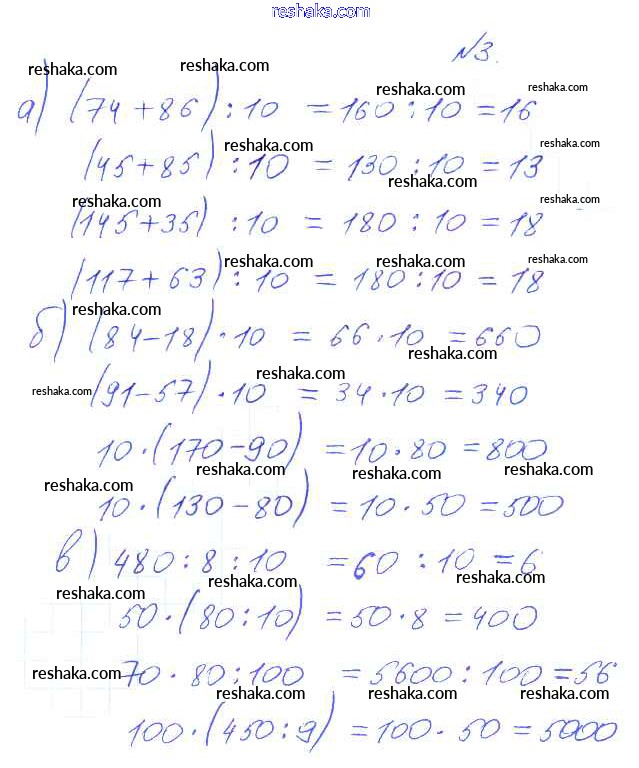 reshaka.com
№3.
reshaka.com reshaka.com reshaka.com reshaka.com
а) (74+86):10 =160:10=16
reshaka.com reshaka.com
(45+85):10 = 130:10=13
reshaka.com
reshaka.com reshaka.com
(145+35) :10 = 180:10=18
reshaka.com reshaka.com reshaka.com
(117+63):10 = 180:10=18
reshaka.com
б) (84-18)·10 = 66·10 =660
reshaka.com
reshaka.com reshaka.com
(91-57)·10 = 34·10 =340
10·(170-90) =10·80 =800
reshaka.com reshaka.com reshaka.com
reshaka.com
10·(130-80) =10·50=500
в) 480:8:10 =60:10=6
reshaka.com reshaka.com
reshaka.com
50·(80:10) =50·8=400
reshaka.com
70·80:100 =5600:100=56
reshaka.com reshaka.com reshaka.com
100·(450:9) =100·50=5000